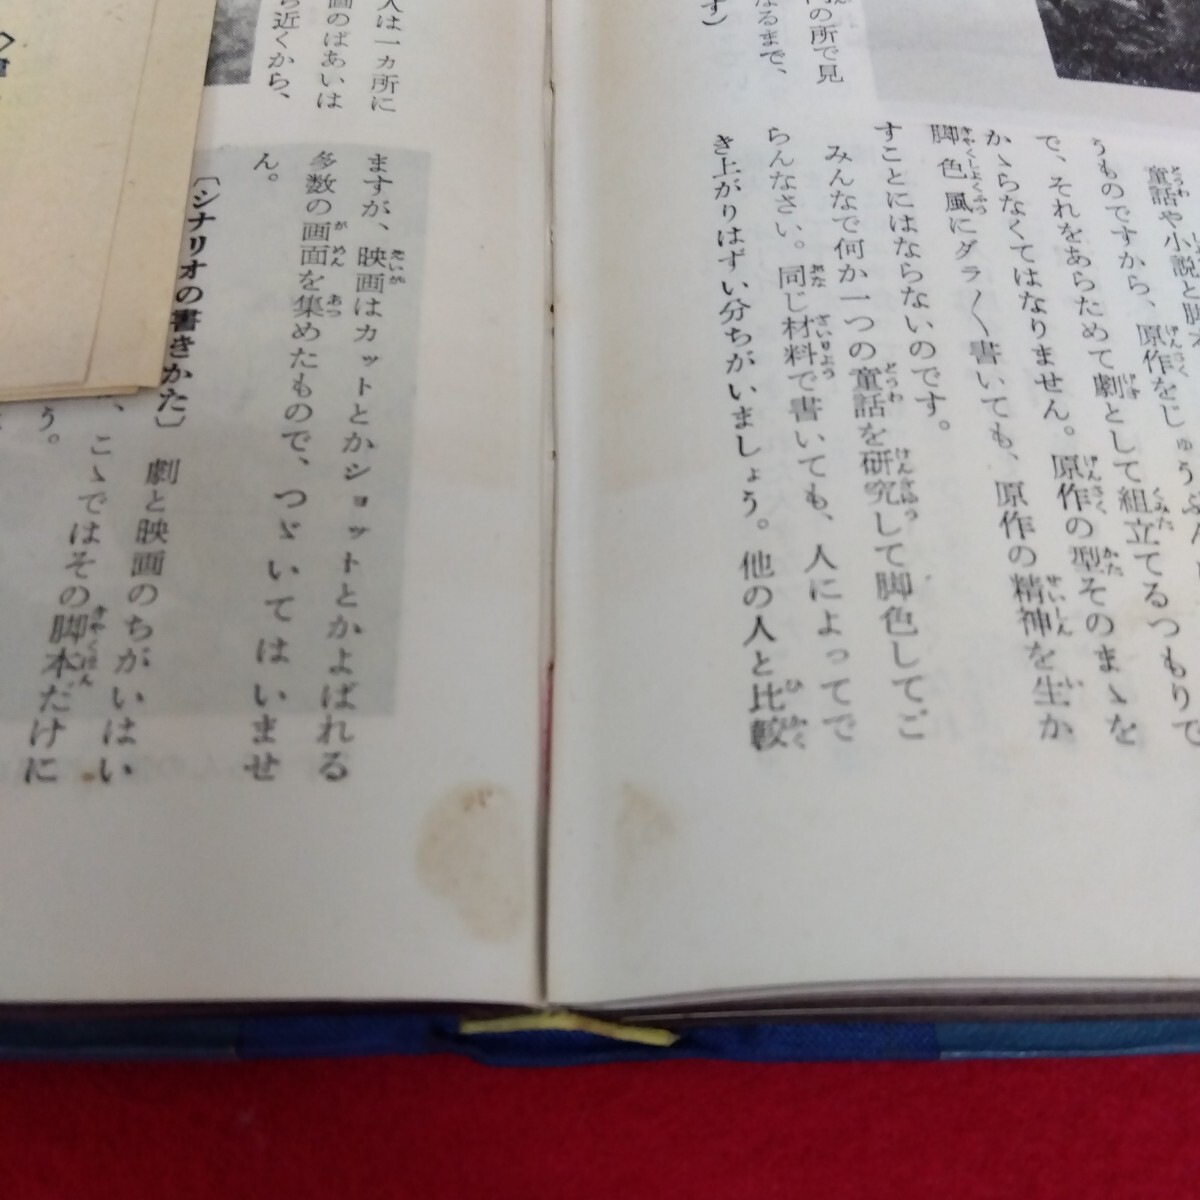 の所で見
なるまで、
す）
童話や小説と脚本
うものですから、原作をじゅうぶん
で、それをあらためて劇として組立てるつもりで
かゝらなくてはなりません。原作の型そのまゝを
脚色風にダラ〱書いても、原作の精神を生か
すことにはならないのです。
みんなで何か一つの童話を研究して脚色してご
らんなさい。同じ材料で書いても、人によってで
き上がりはずい分ちがいましょう。他の人と比較
人は一ヵ所に
画のばあいは
ら近くから、
ますが、映画はカットとかショットとかよばれる
多数の画面を集めたもので、つゞいてはいませ
ん。
〔シナリオの書きかた〕 劇と映画のちがいはい
、こゝではその脚本だけに
う。